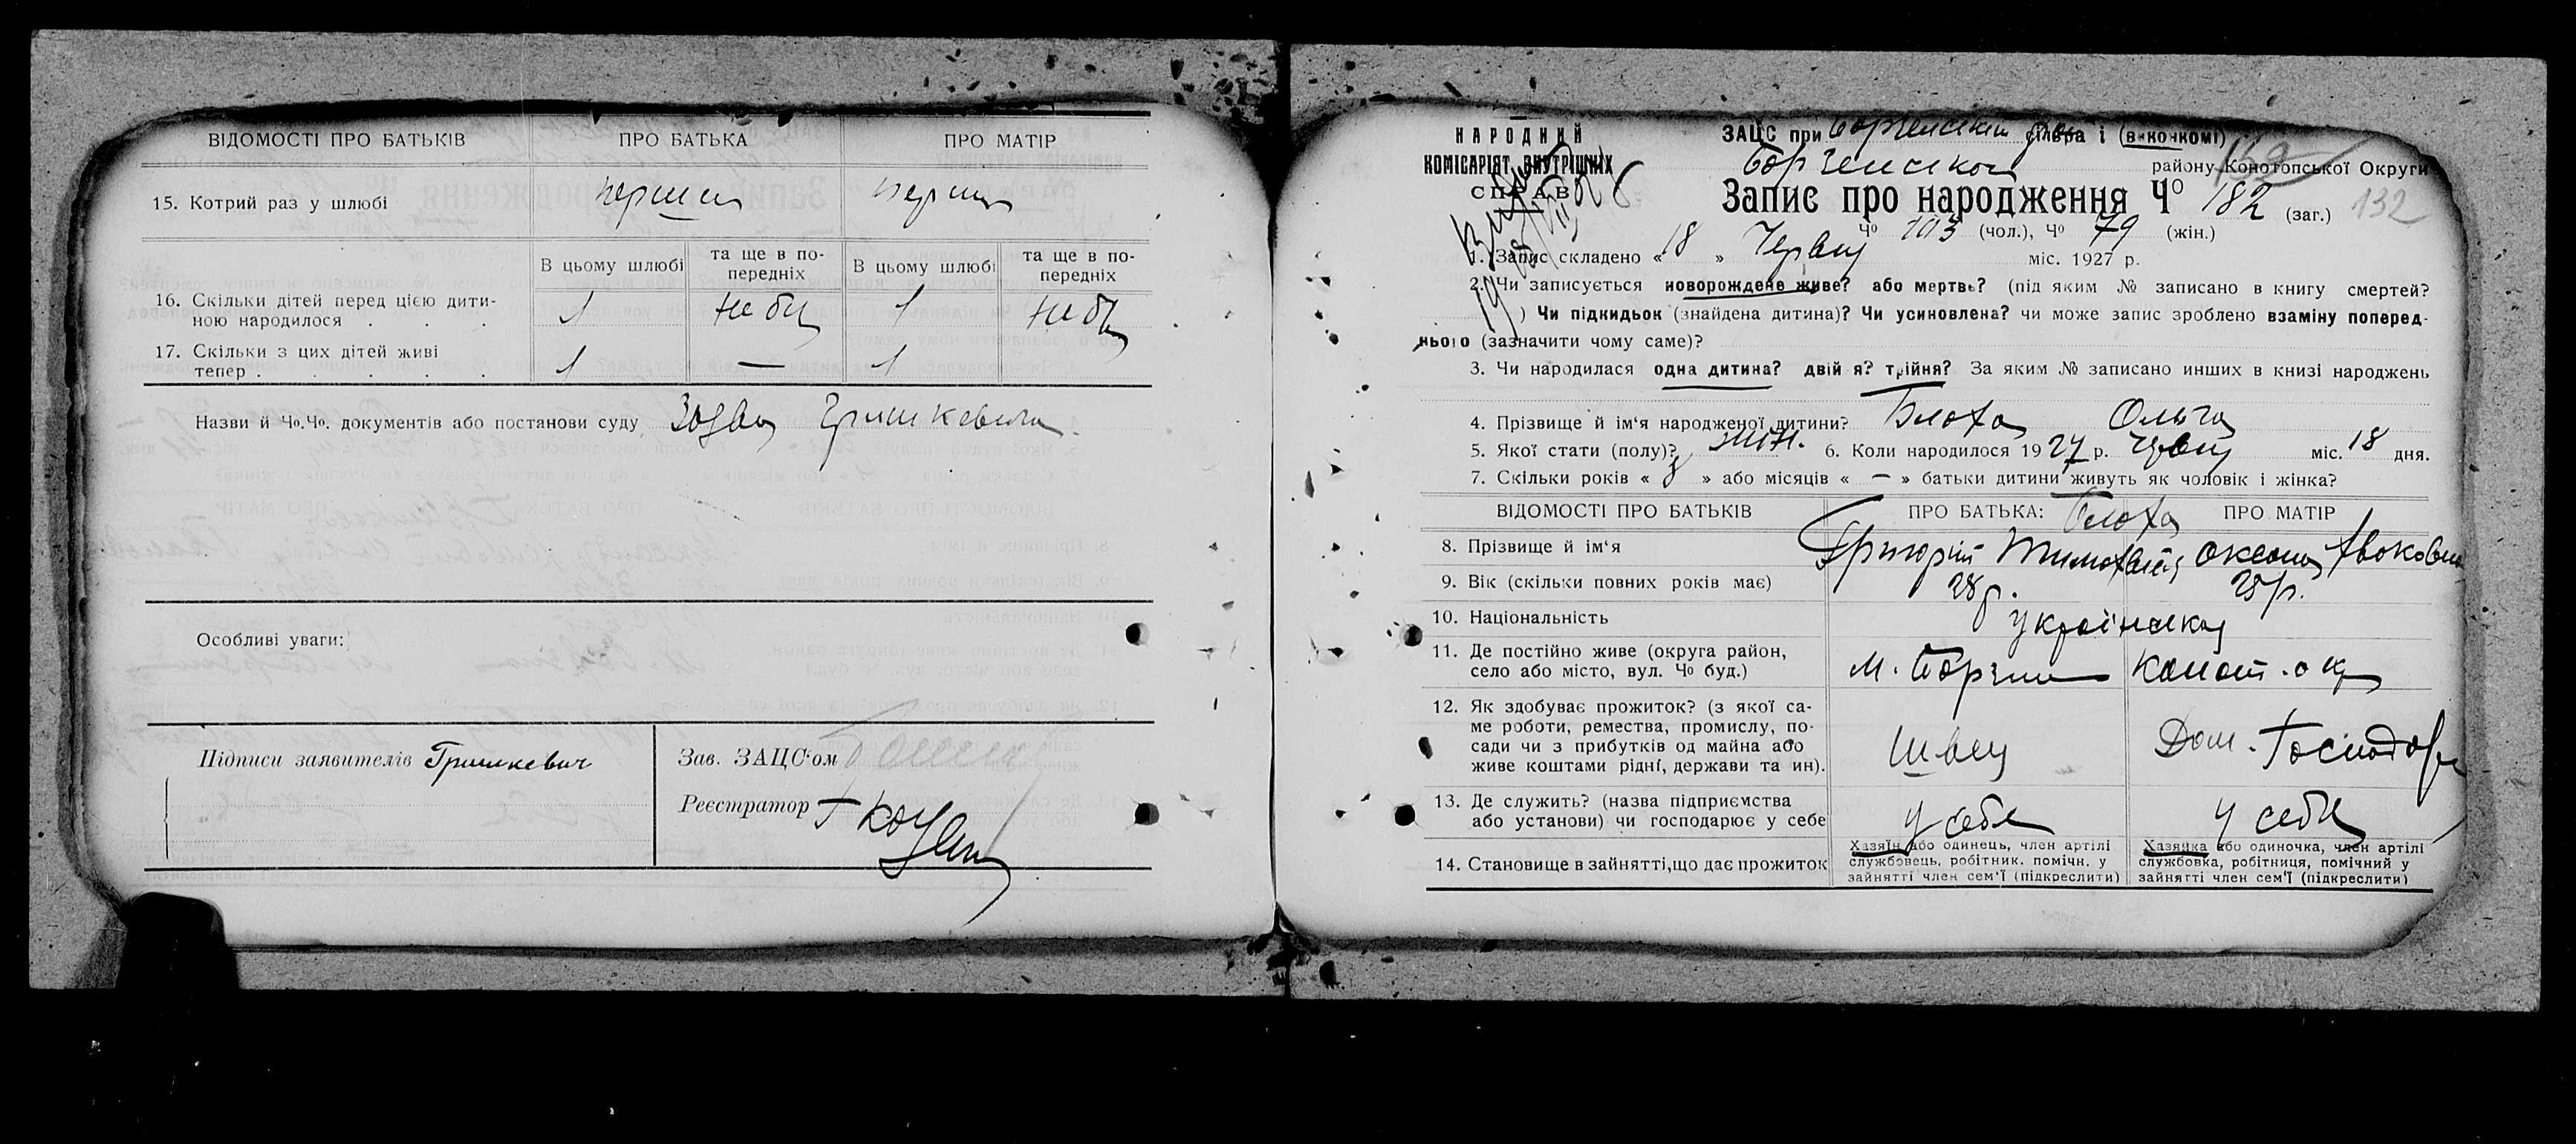 ВІДОМОСТІ ПРО БАТЬКІВ ПРО БАТЬКА ПРО МАТІР
15. Котрий раз у шлюбі перший перший
В цьому шлюбі та ще в по-передніх В цьому шлюбі та ще в по-передніх
16. Скільки дітей перед цією дити-
ною народилося . . . 1 1
17. Скільки з цих дітей живі
тепер . . . . . 1 — 1
Назви й Чо.Чо. документів або постанови суду Заява Гришкевича
Особливі уваги:
Підписи заявителів Гришкевич
Зав. ЗАЦС'ом
Реєстратор
НАРОДНИЙ
КОМІСАРІЯТ ВНУТРІШНІХ
СПРАВ
ЗАЦС при Борзенськім сільра і (виконкомі)
Борзенском району Конотопської Округи
Запис про народження Чо 182 (заг.) 132
Чо 103 (чол.), Чо 79 (жін.)
1. Запис складено « 18 » Червня міс. 1927 р.
2. Чи записується новорождене живе? або мертве? (під яким № записано в книгу смертей?
) Чи підкидьок (знайдена дитина)? Чи усиновлена? чи може запис зроблено взаміну поперед-
нього (зазначити чому саме)?
3. Чи народилася одна дитина? двійня? трійня? За яким № записано инших в книзі народжень
4. Прізвище й ім'я народженої дитини? Блоха Ольга
5. Якої стати (полу)? жін. 6. Коли народилося 1927 р. Червня міс. 18 дня.
7. Скільки років « 3 » або місяців « — » батьки дитини живуть як чоловік і жінка?
ВІДОМОСТІ ПРО БАТЬКІВ ПРО БАТЬКА: Блоха ПРО МАТІР
8. Прізвище й ім'я Григорій Тимофієв Оксана
9. Вік (скільки повних років має) 28 р. 25 р.
10. Національність українська
11. Де постійно живе (округа район,
село або місто, вул. Чо буд.) м. Борзна Конот. окр
12. Як здобуває прожиток? (з якої са-
ме роботи, ремества, промислу, по-
сади чи з прибутків од майна або
живе коштами рідні, держави та ин). Швець Дом. Господар
13. Де служить? (назва підприємства
або установи) чи господарює у себе у себе у себе
14. Становище в зайнятті, що дає прожиток
Хазяїн або одинець, член артілі
службовець, робітник, помічн. у
зайнятті член сем'ї (підкреслити)
Хазяйка або одиночка, член артілі
службовка, робітниця, помічний у
зайнятті член сем'ї (підкреслити)